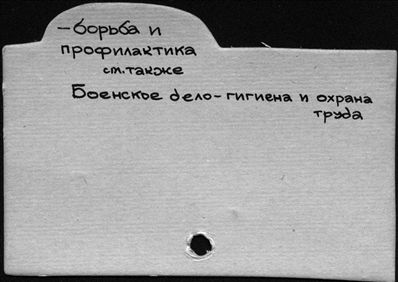 –борьба и
профилактика
см. также
Боенское дело – гигиена и охрана
труда